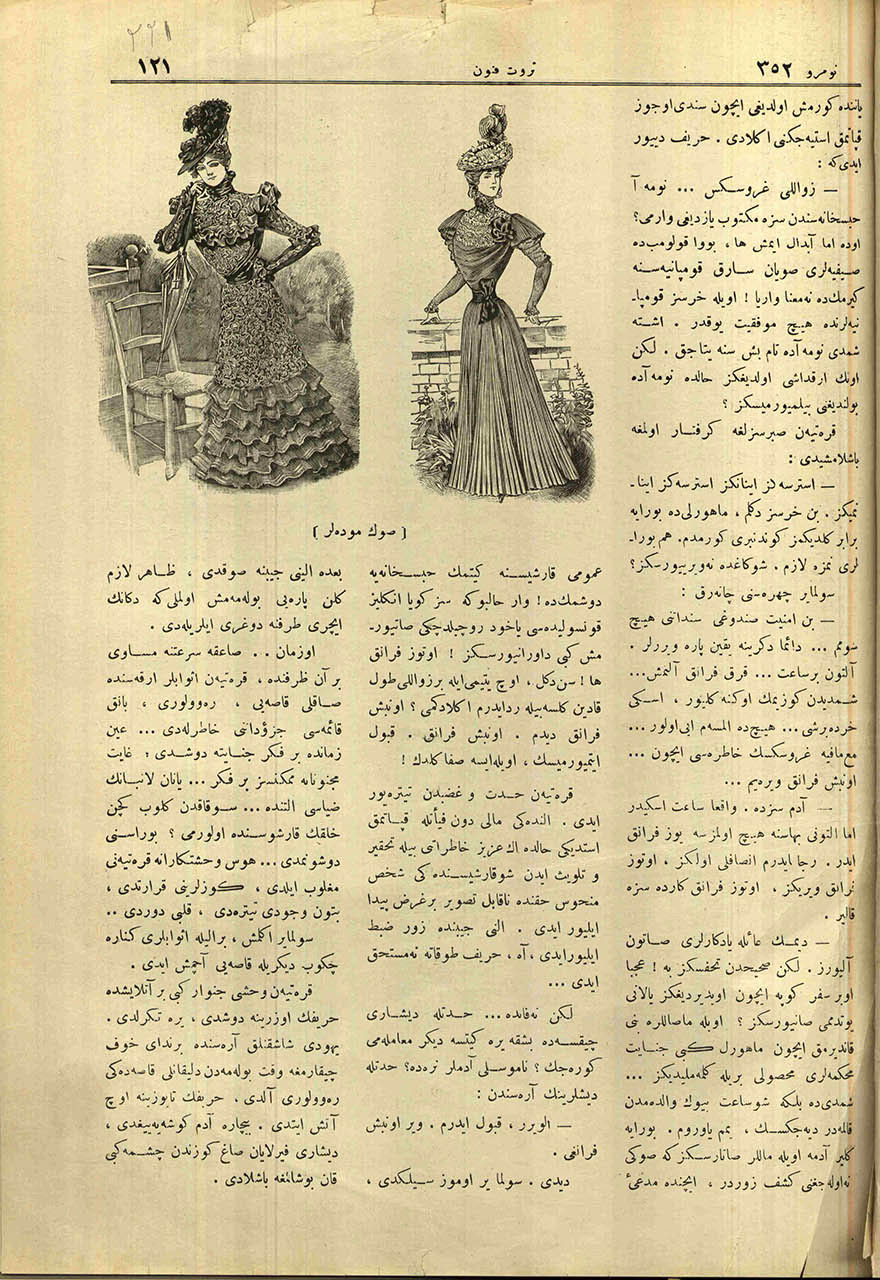 نومرو ٣٥٢
ثروت فنون
١٢١
٢٢١
یاننده كورمش اولدیغی ایچون سندی اوجوز
قپاتمق استیه‌جكنی اكلادی . حریف دییور
ایدی كه :
— زواللی غروسكس ... نومه آ
حبسخانه‌سندن سزه مكتوب یازدیغی وارمی؟
اوده اما آبدال ایمش ها ، بووا قولومب‌ده
صیفیه‌لری صویان سارق قومپانیه‌سنه
كیرمك‌ده نه‌معنا واریا ! اویله خرسز قومپا-
نیه‌لرنده هیچ موفقیت یوقدر . اشته
شمدی نومه‌آده تام بش سنه یتاجق . لكن
اونك ارقداشی اولدیغكز حالده نومه آده
بولندیغنی بیلمیورمیسكز ؟
قره‌تیه‌ن صبرسزلغه كرفتار اولمغه
باشلامشیدی :
— استرسه‌كز اینانكز استرسه‌كز اینا-
نمیكز . بن خرسز دكلم ، ماهورلی‌ده بورایه
برابر كلدیكمز كوندنبری كورمدم. هم بورا-
لری نمزه لازم . شوكاغده نه‌ویرییورسكز؟
سولمایر چهره‌سنی چاتەرق :
— بن امنیت صندوغی سنداتنی هیچ
سومم ... دائما دكرینه یقین پاره ویررلر .
آلتون برساعت ... قرق فرانق آلنمش...
شمدیدن كوزیمك اوكنه كلیور ، اسكی
خرده‌برشی... هیچ‌ده المسەم ایی‌اولور...
مع‌مافیه غروسكسك خاطره‌سی ایچون ...
اونبش فرانق ویره‌یم ...
— آدم سزده . واقعا ساعت اسكیدر
اما التونی بهاسنه هیچ اولمزسه یوز فرانق
ایدر . رجا ایدرم انصافلی اولكز ، اوتوز
فرانق ویریكز ، اوتوز فرانق كارده سزه
قالیر .
— دیمك عائله یادكارلری صاتون
آلیورز . لكن صحیحدن تحفسكز به ! عجبا
اوبر سفر كوپه ایچون اویدیردیغكز یالانی
یوتدممی صانیورسكز ؟ اویله ماصاللره بنی
قاندیرمق ایچون ماهورل كبی جنایت
محكمه‌لری محصولی بریله كلمه‌ملیدیكز ...
شمدی‌ده بلكه شوساعت بیوك والده‌مدن
قالمه‌در دیه‌جكسك ، یم یاوروم . بورایه
كلیر آدمه اویله ماللر صاتارسكز كه صوكی
نه‌اوله‌جغنی كشف زوردر ، ایچنده مدعیٔ
( صوك موده‌لر )
عمومی قارشیسنه كیتمك حبسخانه‌یه
دوشمك‌ده ! وار حالبوكه سز كویا انكلیز
قونسولیده‌سی یاخود روچیلدچكی صاتیور-
مش كبی داورانیورسكز ! اوتوز فرانق
ها ! سن‌دكل ، اوچ یتیمی‌ایله برزواللی‌طول
قادین كلسه‌بیله ردایدرم اكلادكمی ؟ اونبش
فرانق دیدم . اونبش فرانق . قبول
ایتمیورمیسك ، اویله‌ایسه صفا كلدك !
قره‌تیه‌ن حدت و غضبدن تیتره‌یور
ایدی . النده‌كی مالی دون فیأتله قپاتمق
استدیكی حالده اك عزیز خاطراتی بیله تحقیر
و تلویث ایدن شوقارشیسنده كی شخص
منحوس حقنده ناقابل تصویر برغرض پیدا
ایلیور ایدی . النی جیبنده زور ضبط
ایلیورایدی ، آه ، حریف طوقاته نه‌مستحق
ایدی ...
لكن نه‌فائده... حدتله دیشاری
چیقسه‌ده بشقه یره كیتسه دیكر معامله‌می
كوره‌جك ؟ ناموسلی آدملر نره‌ده؟ حدتله
دیشلرینك آره‌سندن :
— الویرر ، قبول ایدرم . ویر اونبش
فرانغی .
دیدی . سولما یر اوموز سیلكدی ،
بعده النی جیبنه صوقدی ، ظاهر لازم
كلن پاره‌یی بوله‌مه‌مش اولملی‌كه دكانك
ایچری طرفنه دوغری ایلریله‌دی .
اوزمان . . صاعقه سرعتنه مساوی
بر آن ظرفنده ، قره‌تیه‌ن اثوابلر ارقه‌سنده
صاقلی قاصه‌یی ، ره‌وولوری ، بانق
قائمه‌سی جزؤدانی خاطرله‌دی ... عین
زمانده بر فكر جنایته دوشدی ؛ غایت
مجنونانه ممكنسز بر فكر ... یانان لانبانك
ضیاسی التنده ... سوقاقدن كلوب كچن
خلقك قارشوسنده اولورمی ؟ بوراسنی
دوشونمدی... هوس وحشتكارانه قره‌تیه‌نی
مغلوب ایلدی ، كوزلرینی قرارتدی ،
بتون وجودی تیتره‌دی ، قلبی دوردی ..
سولمایر اكلمش ، بر الیله اثوابلری كناره
چكوب دیكریله قاصه‌یی آچمش ایدی .
قره‌تیه‌ن وحشی جنوار كبی بر آتلایشده
حریفك اوزرینه دوشدی ، یره تكرلدی .
یهودی شاشقنلق آره‌سنده برندای خوف
چیقارمغه وقت بوله‌مه‌دن دلیقانلی قاصه‌ده‌كی
ره‌وولوری آلدی . حریفك تابوزینه اوچ
آتش ایتدی . بیچاره آدم كوشه‌یه‌ییغدی ،
دیشاری فیرلایان صاغ كوزندن چشمه‌كبی
قان بوشانمغه باشلادی .